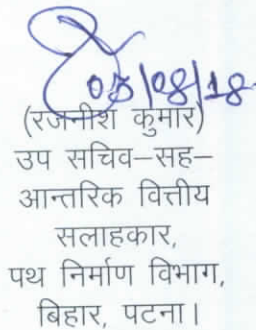 03/08/18
(रजनीश कुमार)
उप सचिव–सह–
आन्तरिक वित्तीय
सलाहकार,
पथ निर्माण विभाग,
बिहार, पटना।